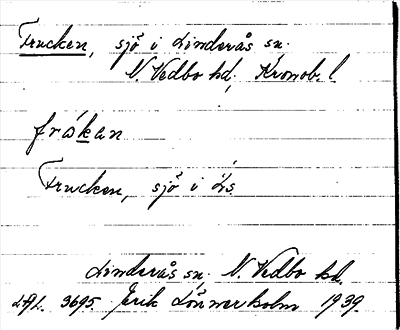 Frucken, sjö i Linderås sn.
N. Vedbo hd, Kronob. l.
fråkan
Frucken, sjö i Ls
Linderås sn, N. Vedbo hd.
LAL. 3695. Erik Lönnerholm 1939.